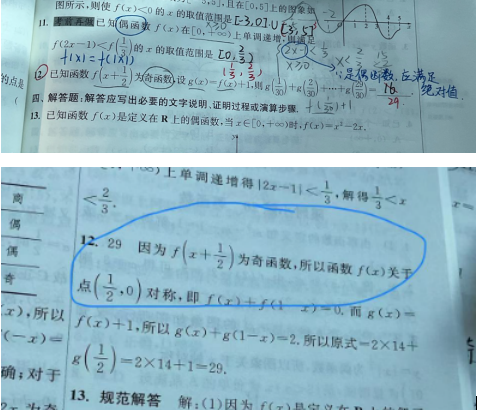 图所示,则使 f(x)<0 的 x 的取值范围是[-3,0]∪[3,5]
11. 已知偶函数 f(x)在[0,+∞)上单调递增,则满足
f(2x-1)<f(1/3)的 x 的取值范围是
f(x)=f(|x|)
(1/3, 2/3)
是偶函数,应满足
绝对值.
12 已知函数 f(x+1/2)为奇函数,设 g(x)=f(x)+1,则 g(1/30)+g(2/30)+…+g(29/30)=
29.
四、解答题:解答应写出必要的文字说明、证明过程或演算步骤.
13. 已知函数 f(x)是定义在 R 上的偶函数,当 x∈[0,+∞)时,f(x)=x²-2x.
+∞)上单调递增得|2x-1|<1/3,解得1/3<x
<2/3.
12. 29 因为 f(x+1/2)为奇函数,所以函数 f(x)关于
点(1/2,0)对称,即 f(x)+f(1-x)=0.而 g(x)=
f(x)+1,所以 g(x)+g(1-x)=2.所以原式=2×14+
g(1/2)=2×14+1=29.
13. 规范解答 解:(1)因为 f(x)是定义在 R 上的偶函
商
偶
偶
奇
x),所以
(-x)=
确;对于